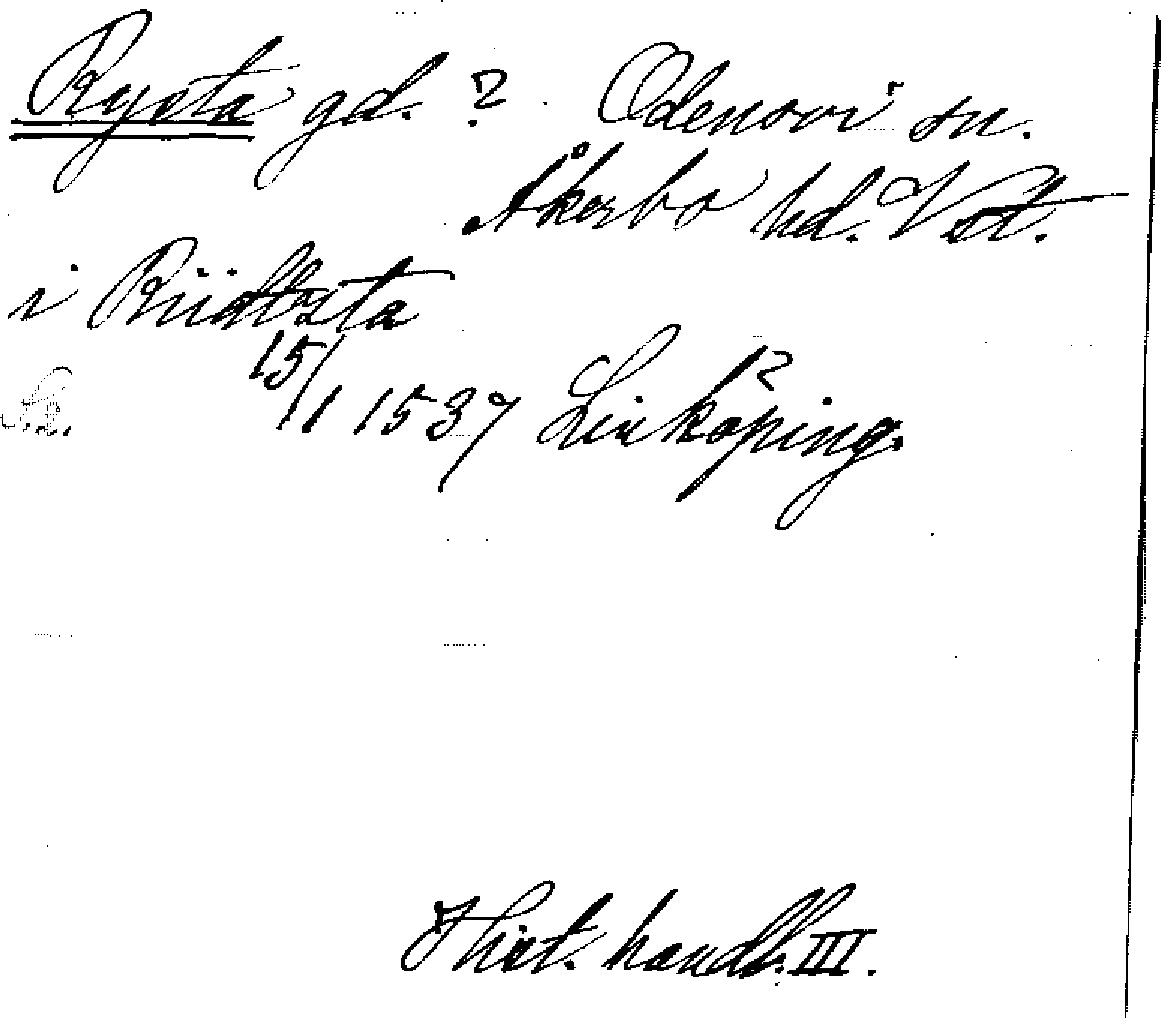 Rysta gd. ? Odensvi sn.
Åkerbo hd. Vst.
i
15/1 1537 Linköping.
Hist. handl. III.